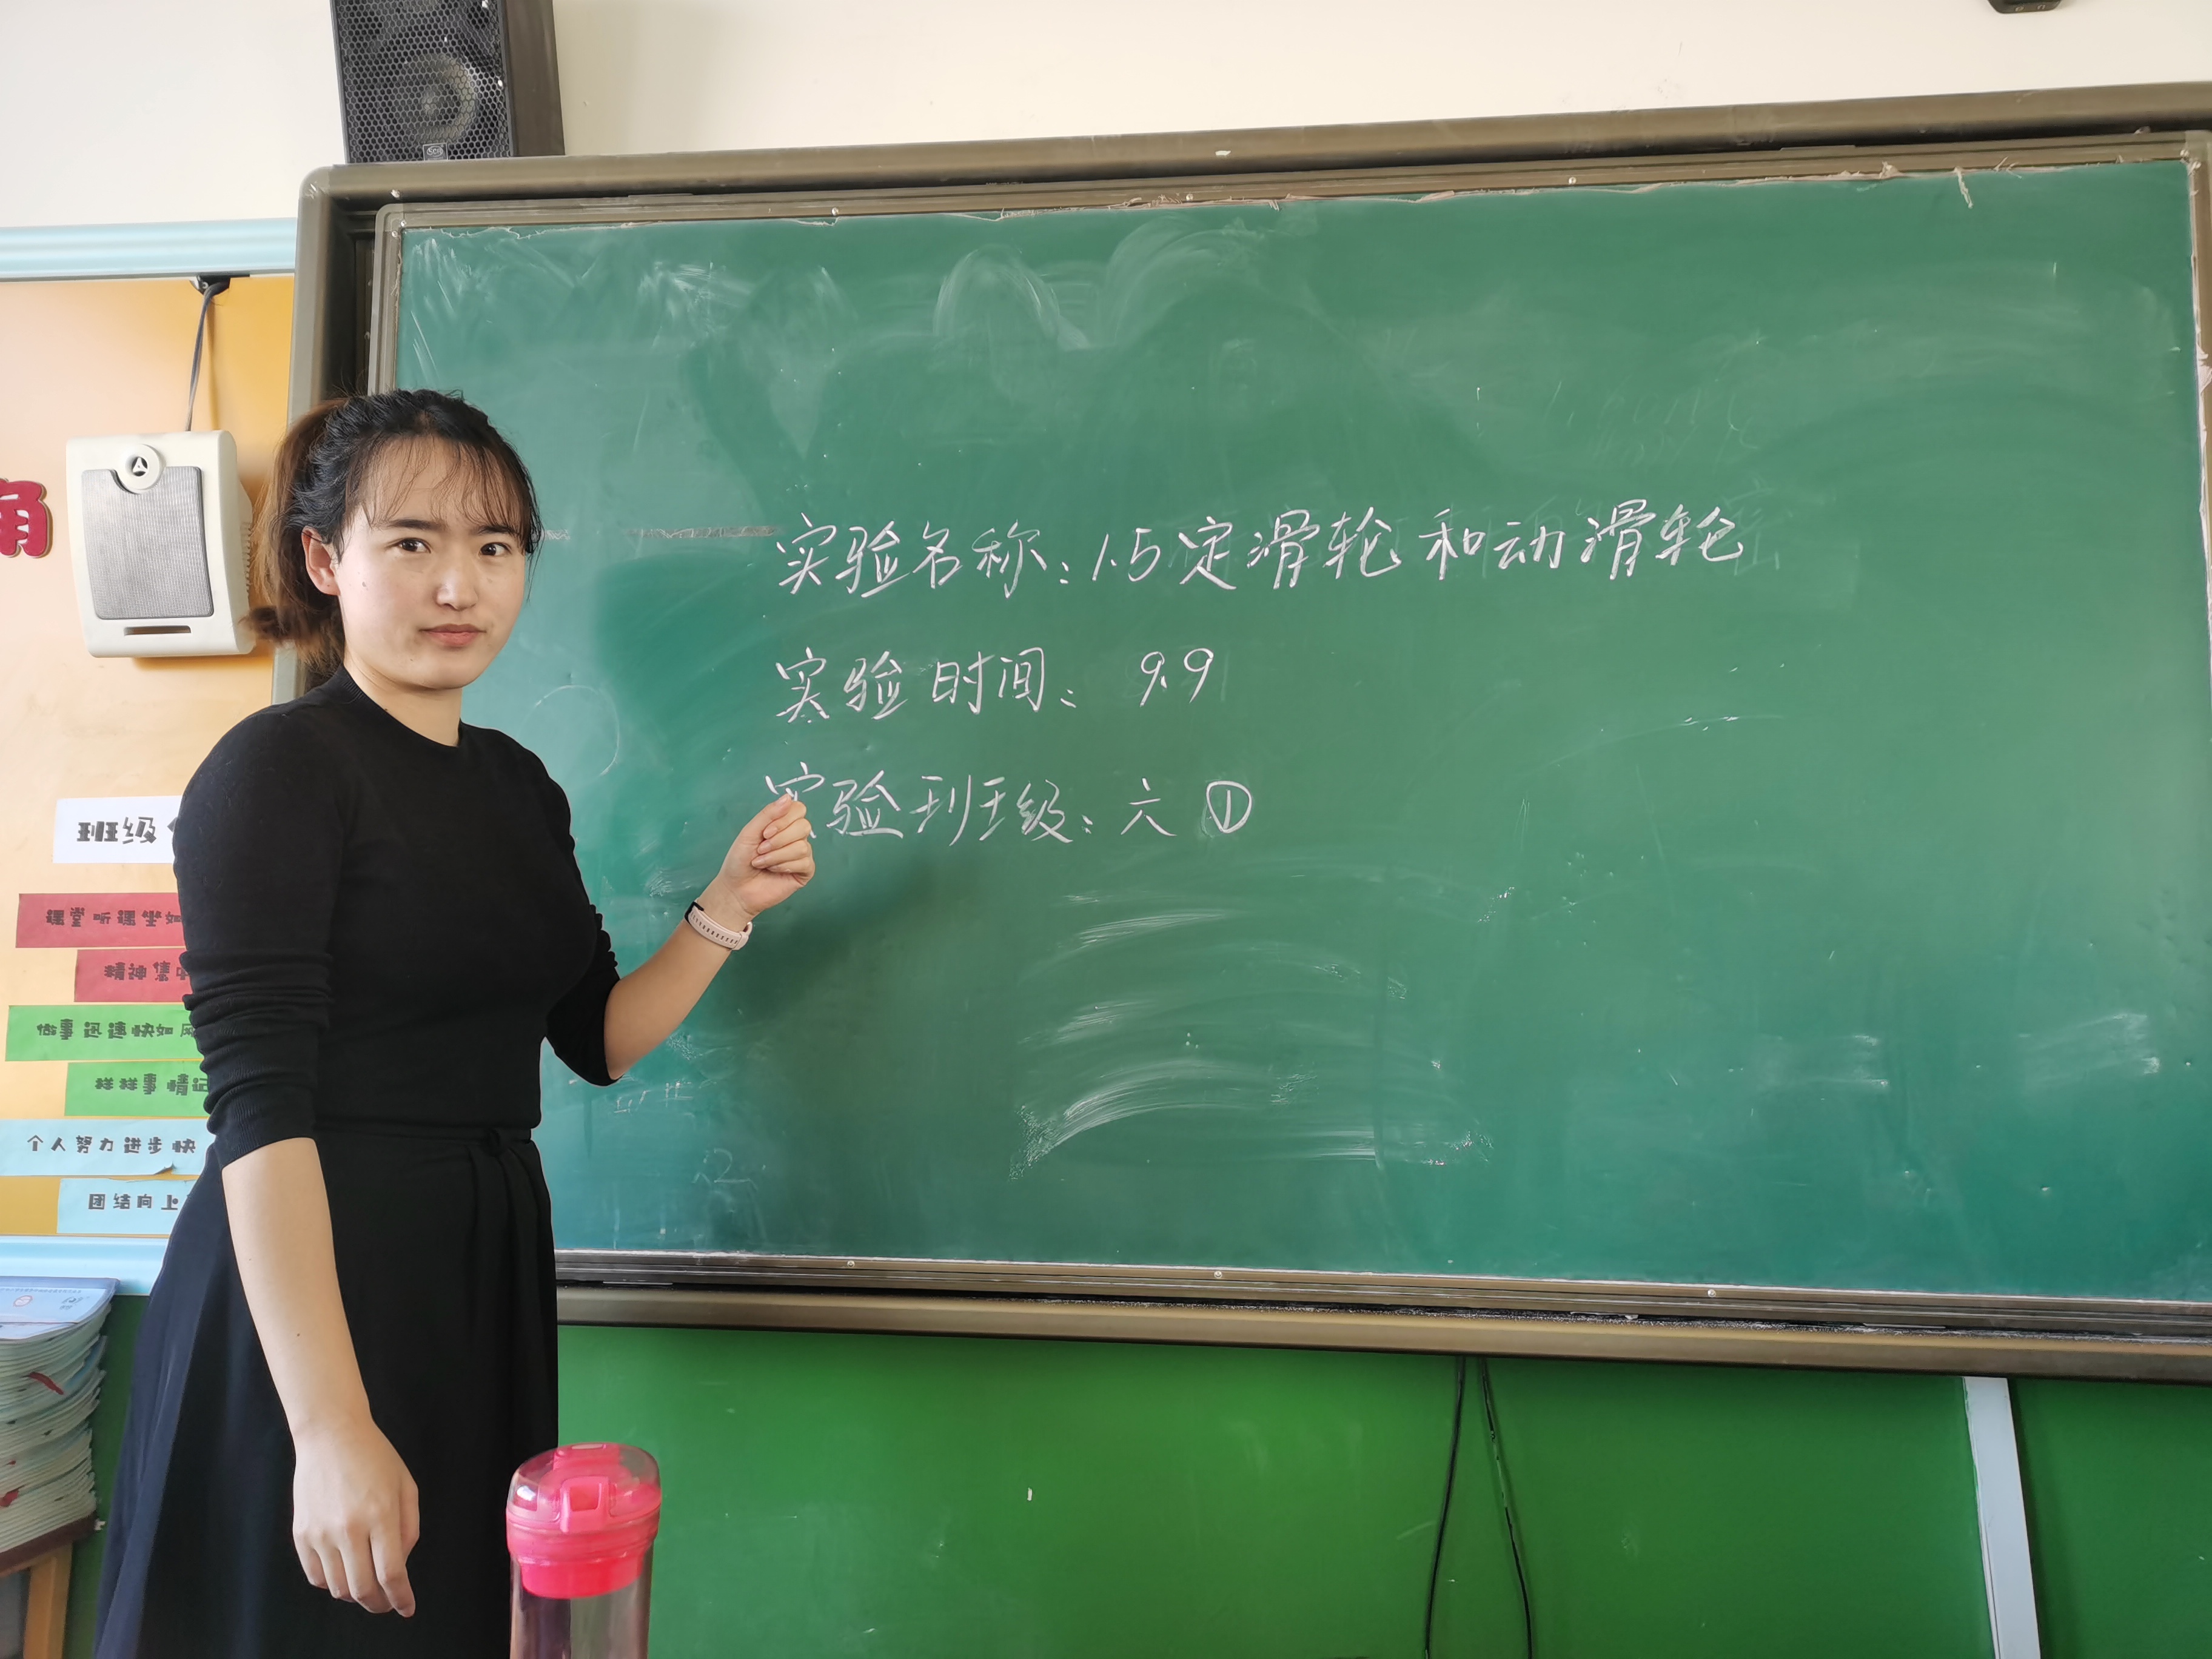 角
实验名称：1.5定滑轮和动滑轮
实验时间：9.9
实验班级：六①
班级
课堂听课坐如
精神集中
做事迅速快如风
样样事情记
个人努力进步快
团结向上